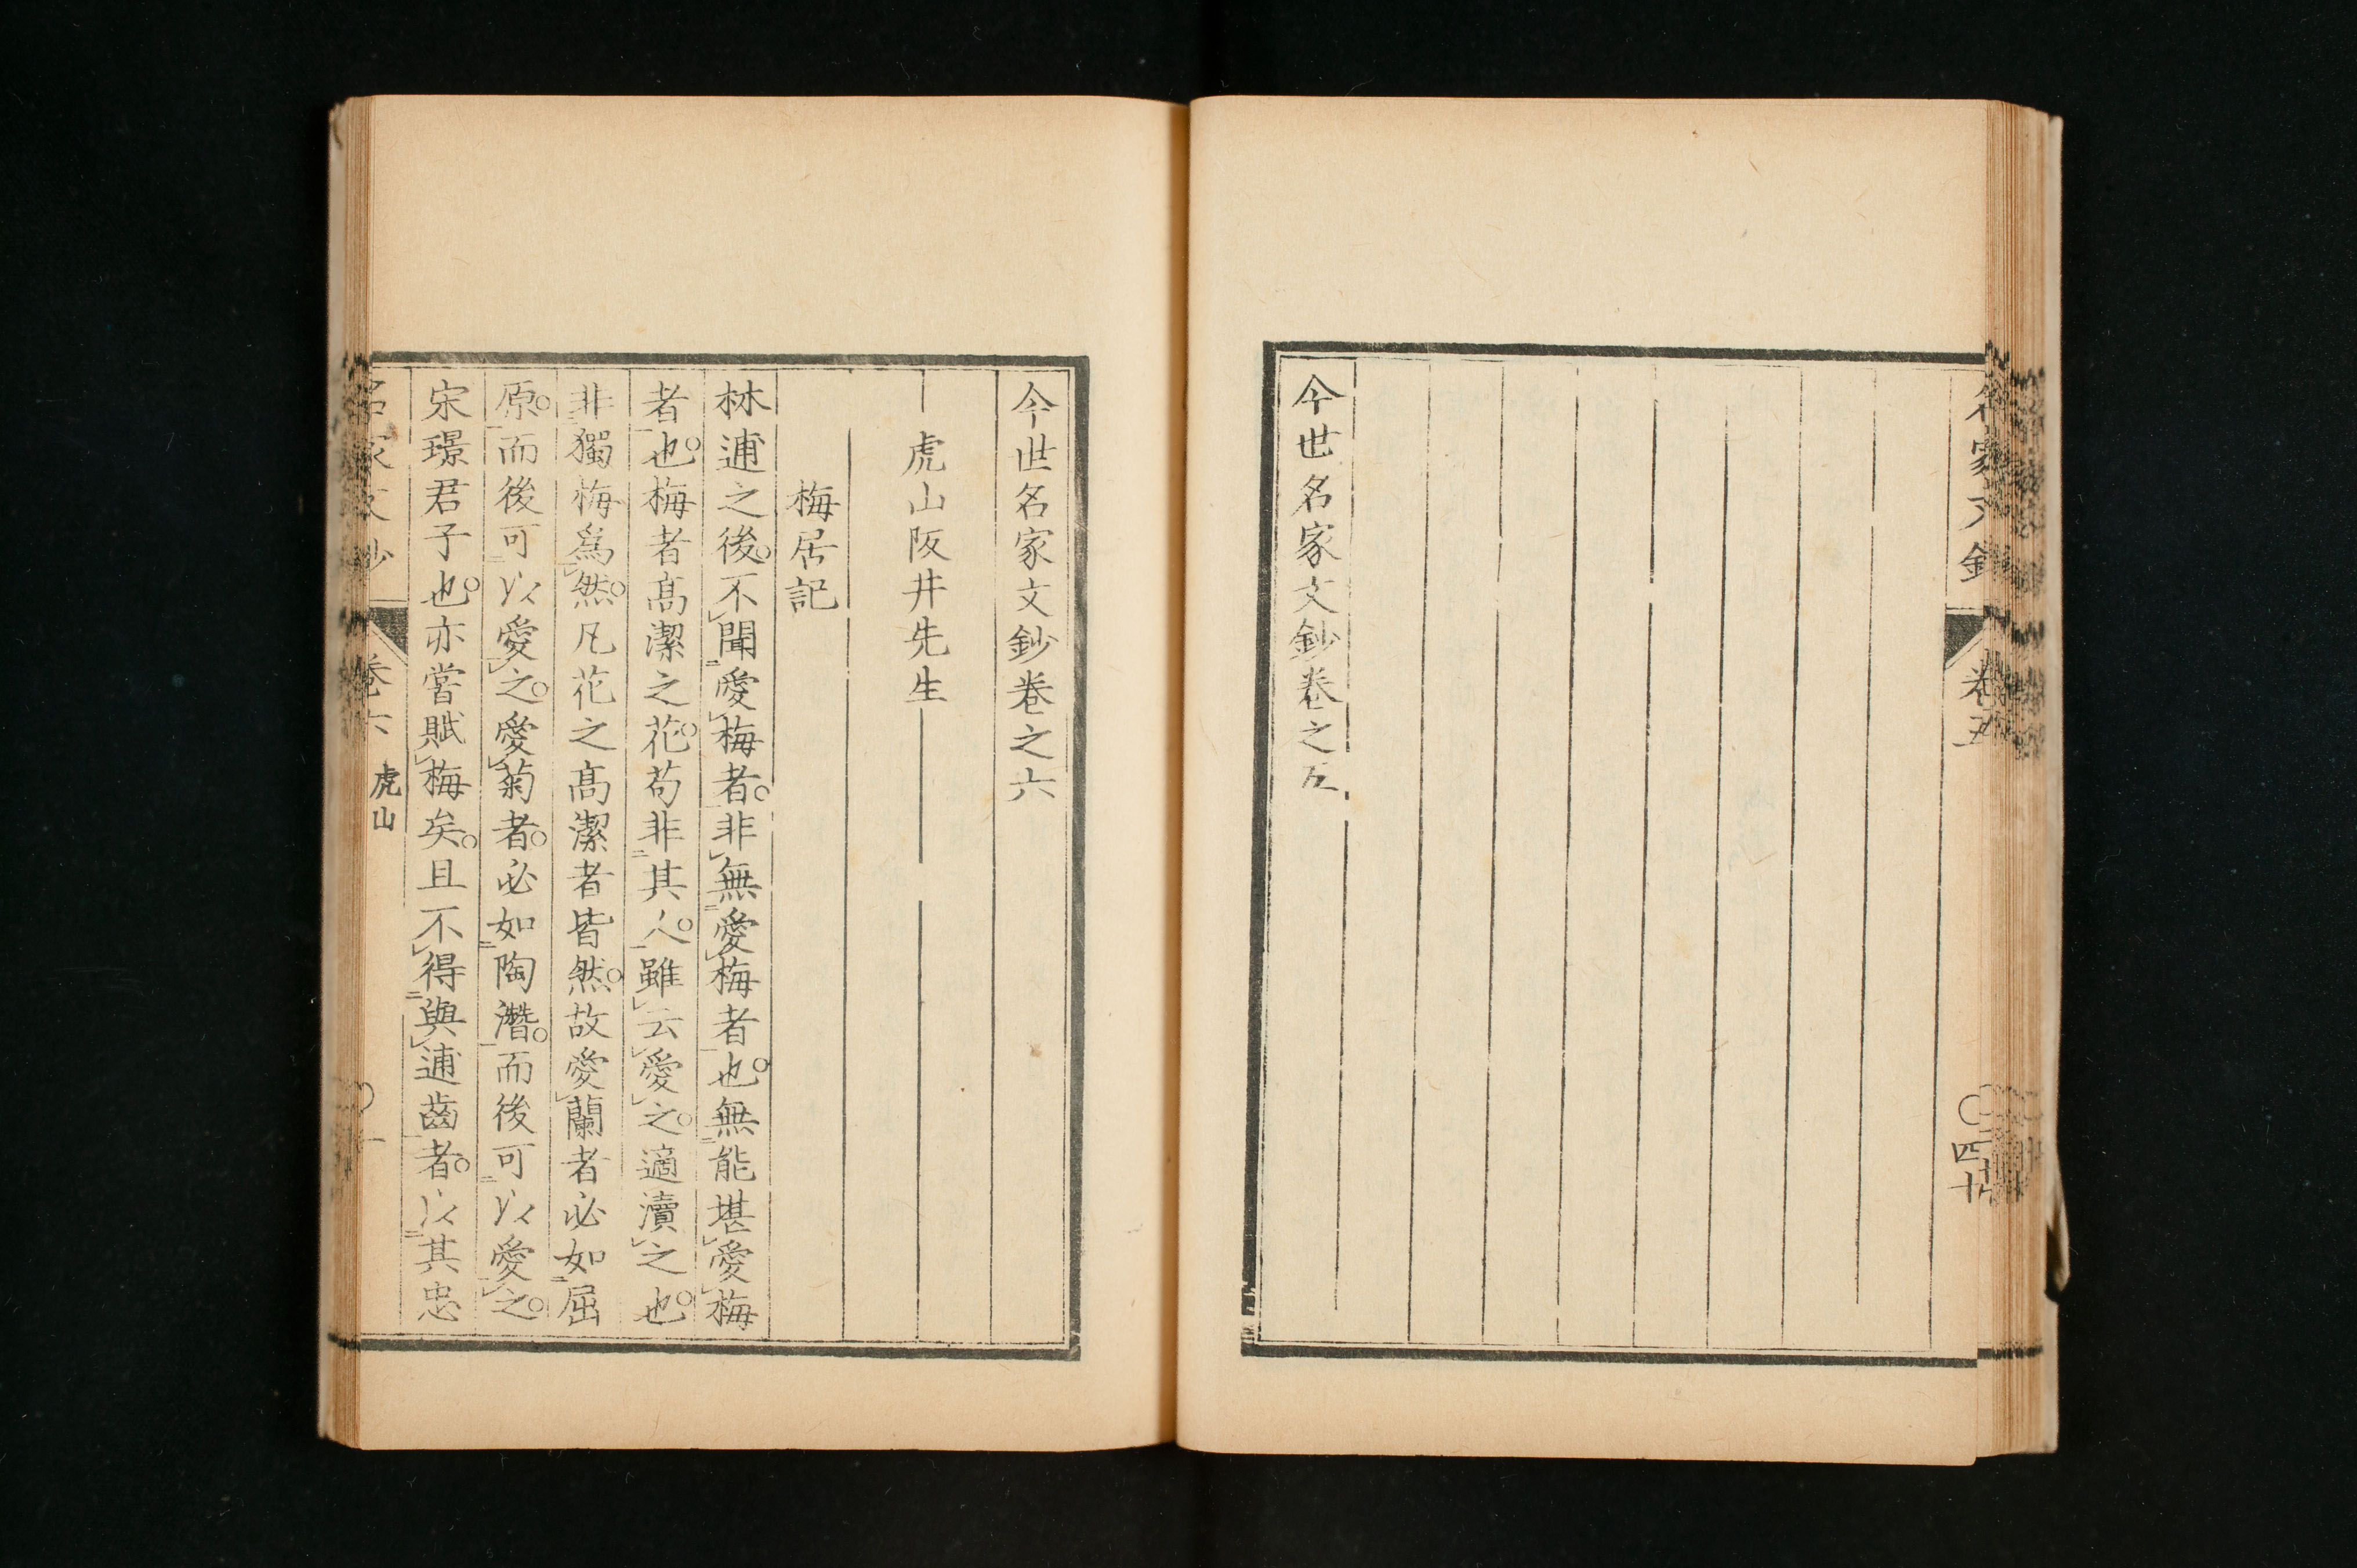 今世名家文鈔卷之五
今世名家文鈔卷之六
虎山阪井先生
梅居記
林逋之後。不聞愛梅者。非無愛梅者也。無能堪愛梅
者也。梅者高潔之花。苟非其人。雖云愛之。適瀆之也。
非獨梅爲然。凡花之高潔者皆然。故愛蘭者必如屈
原。而後可以愛之。愛菊者。必如陶潛。而後可以愛之。
宋璟君子也。亦嘗賦梅矣。且不得與逋齒者。以其忠
虎山